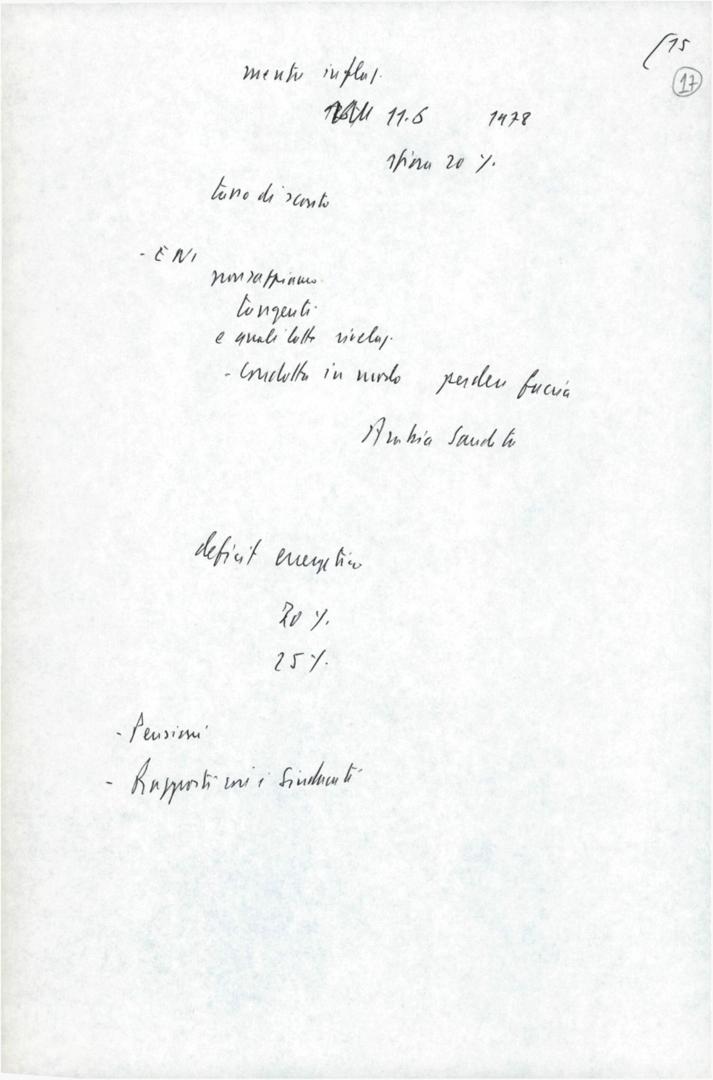 15
17
mentre inflaz.
11.6 1978
sfiora 20 %.
tasso di sconto
- ENI
non sappiamo
tangenti
e quali lotte rivelaz.
- Condotta in modo perdere faccia
Arabia Saudita
deficit energetico
20 %.
25 %.
- Pensioni
- Rapporti con i Sindacati